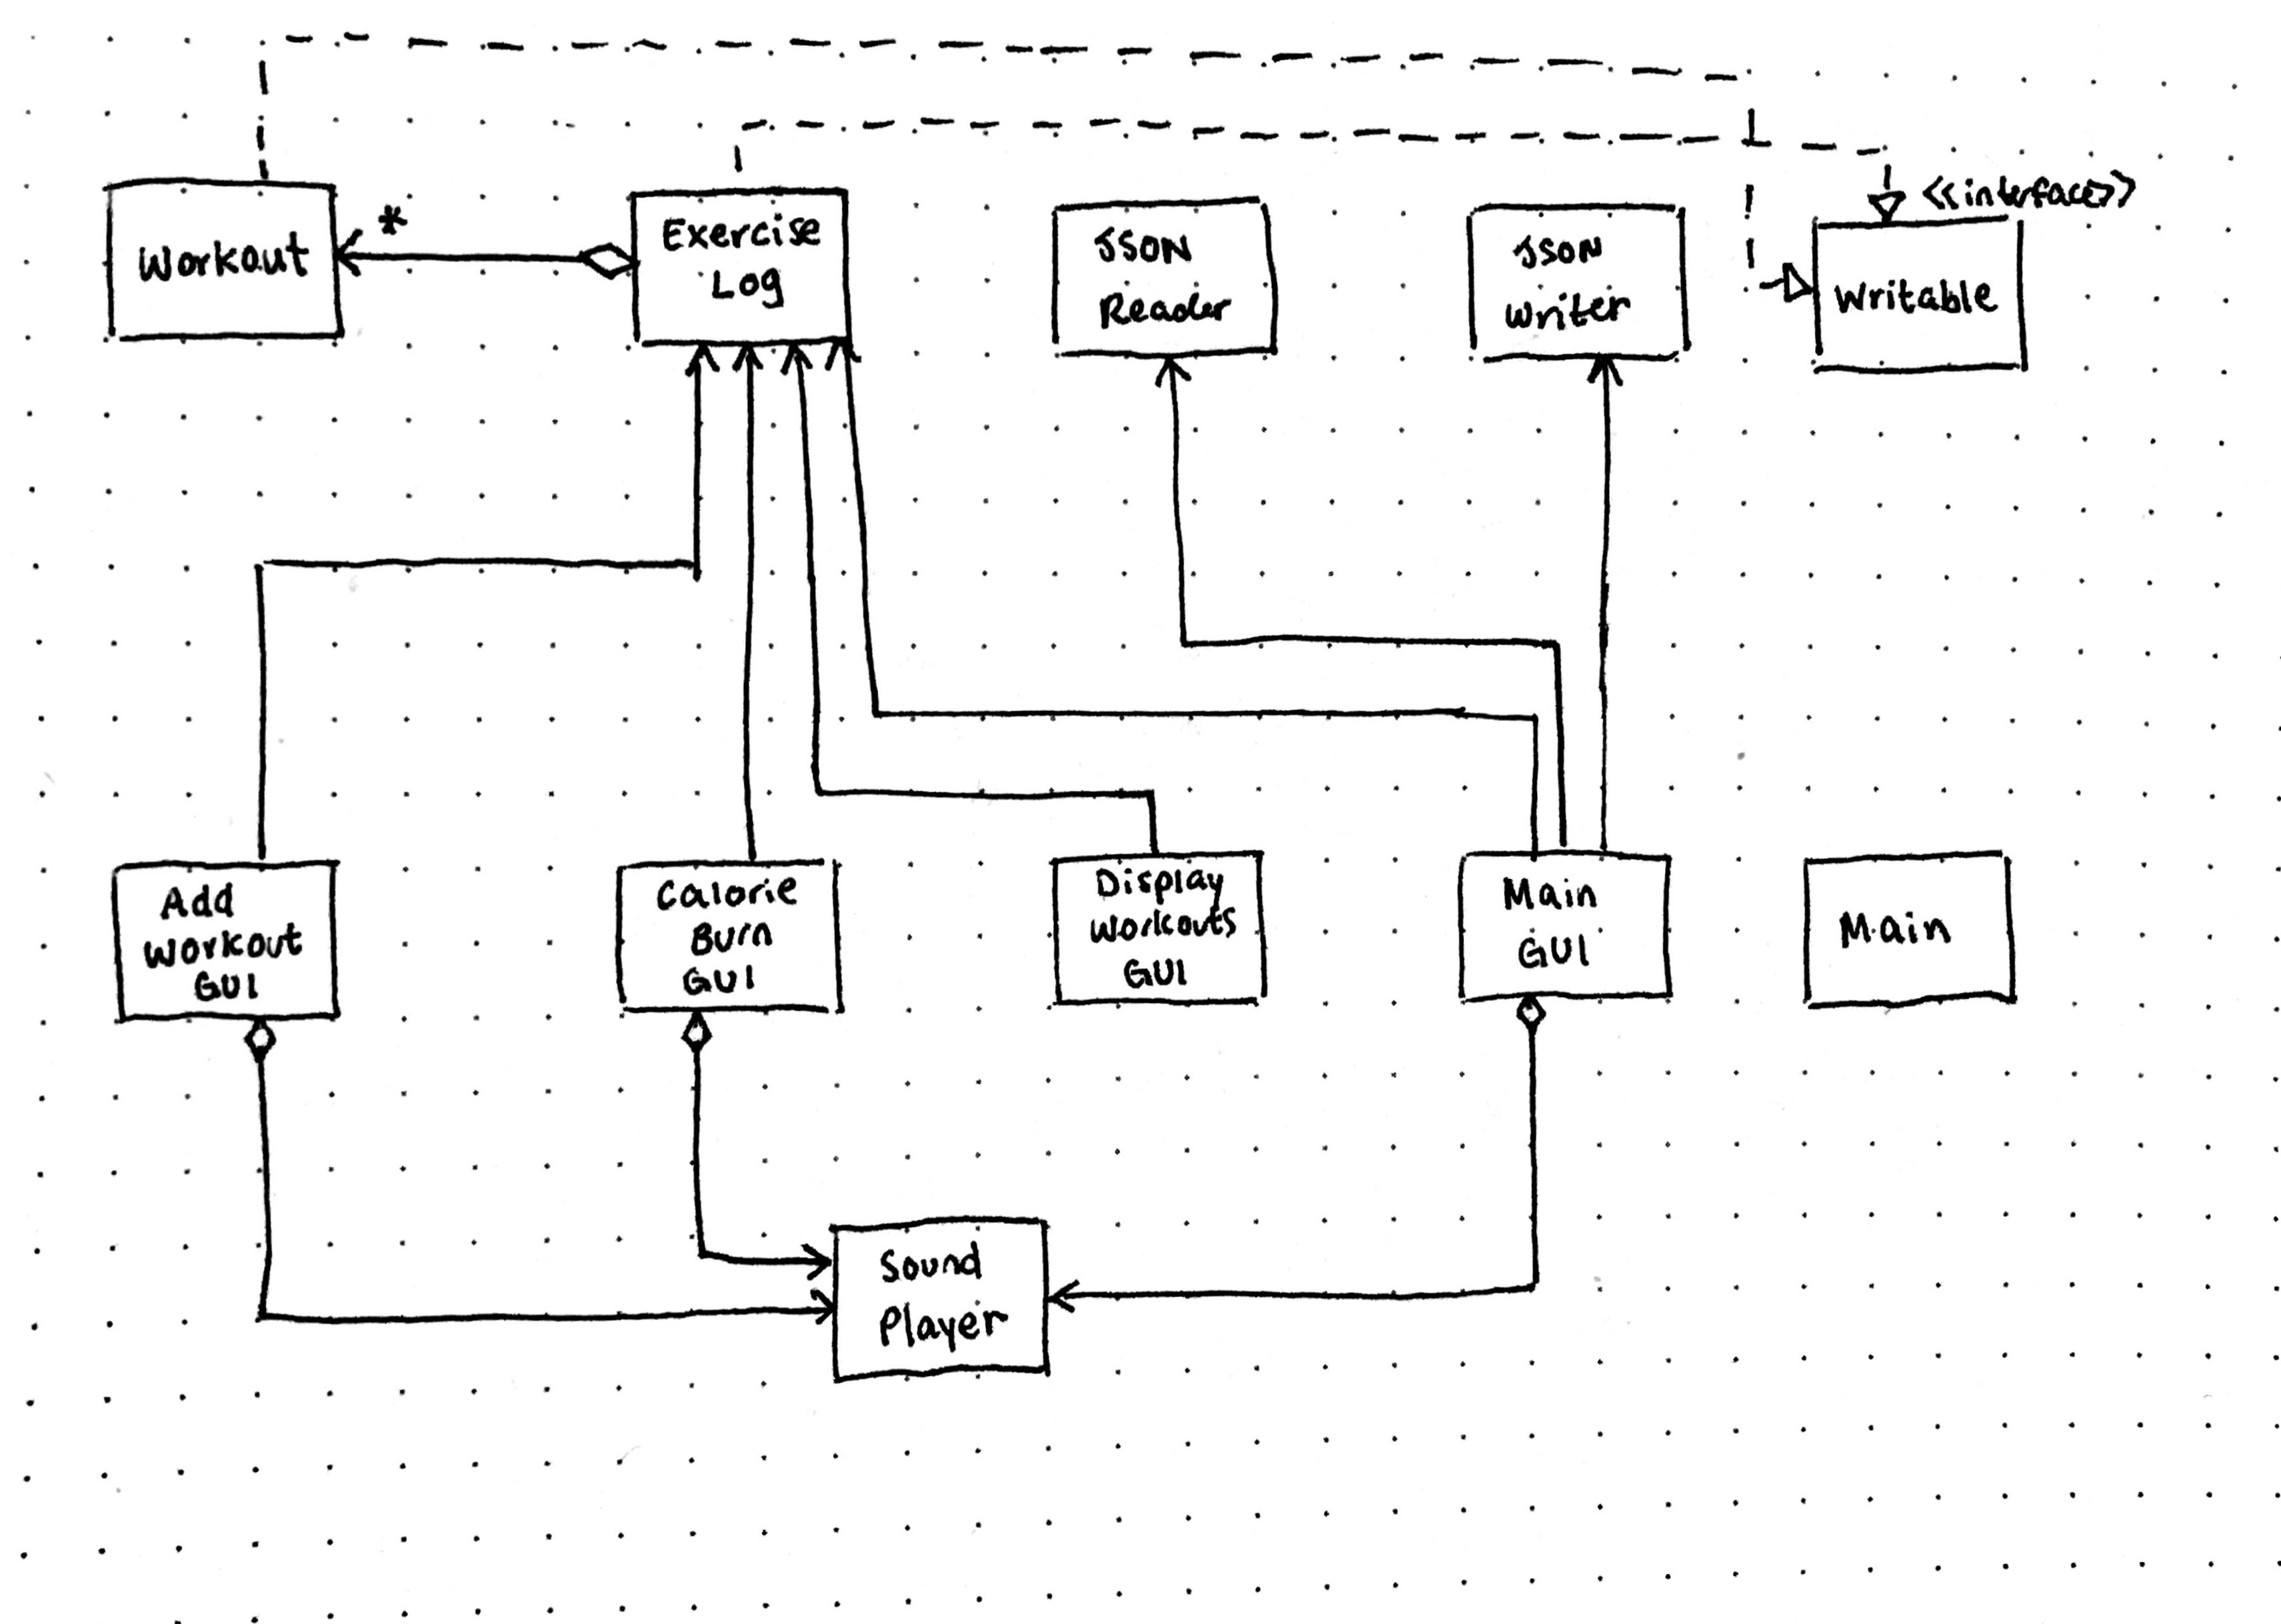 <<interface>>
*
Workout
Exercise
Log
JSON
Reader
JSON
Writer
Writable
Add
Workout
GUI
Calorie
Burn
GUI
Display
Workouts
GUI
Main
GUI
Main
Sound
Player